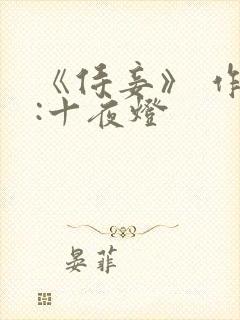 《侍妾》 作
:十夜燈
晏菲